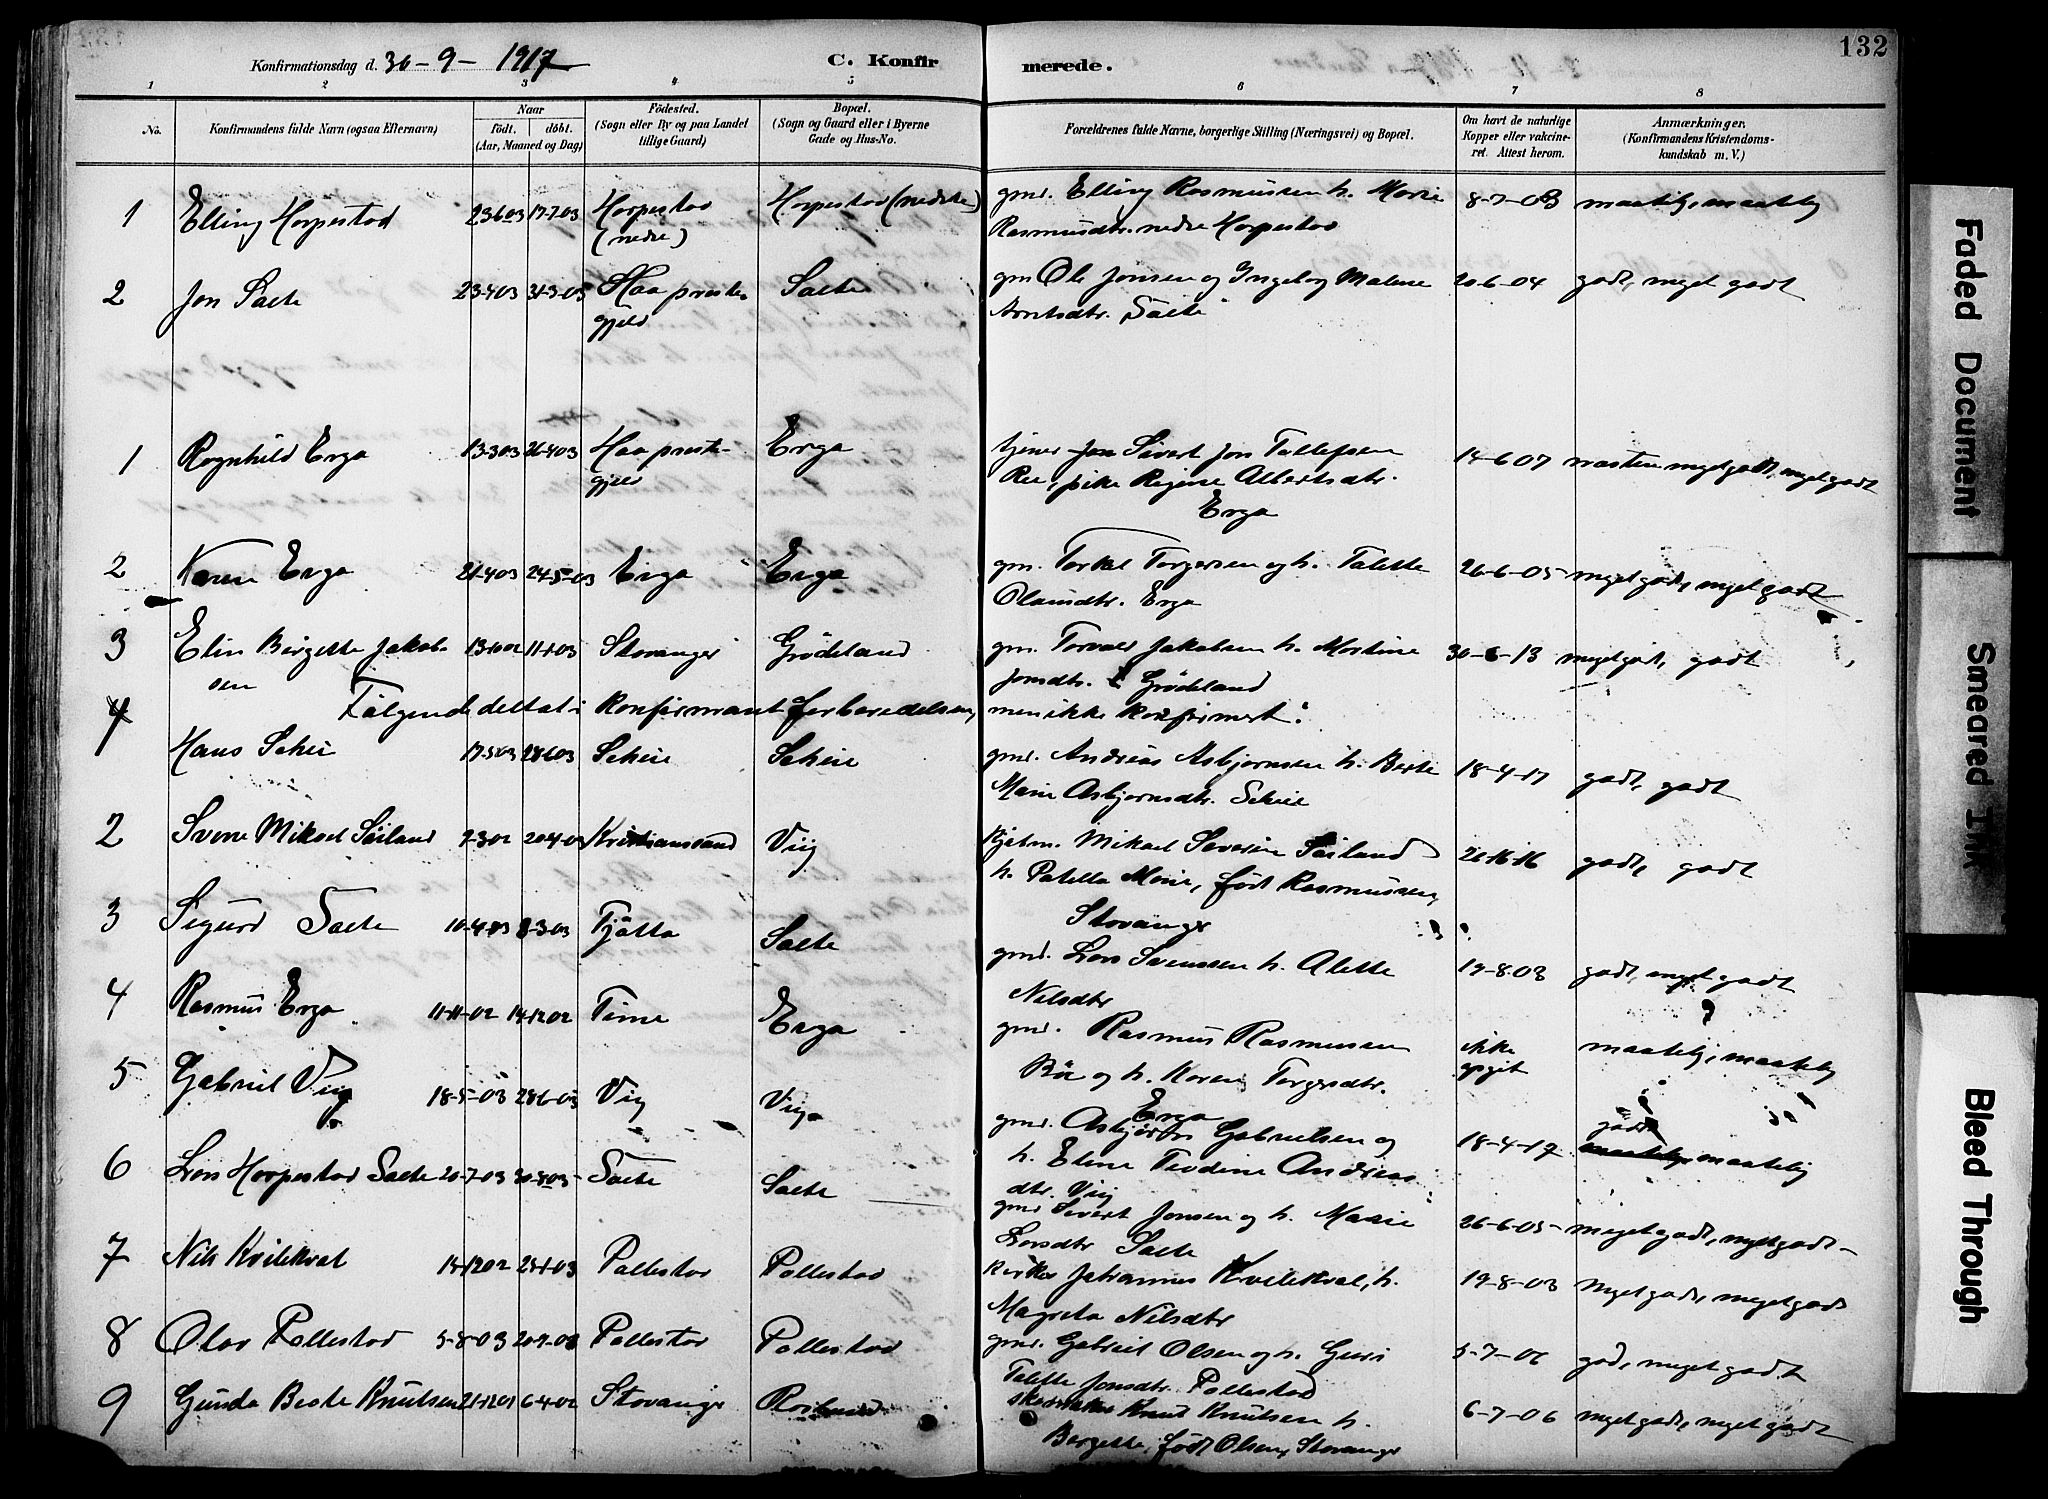 Konfirmationsdag d. 30-9- 1917
C. Konfirmerede.
132
1 2 3 4 5 6 7 8
No.
Konfirmandens fulde Navn (ogsaa Efternavn)
Naar
födt. döbt.
(Aar, Maaned og Dag)
Födested.
(Sogn eller By og paa Landet
tillige Gaard)
Bopæl.
(Sogn og Gaard eller i Byerne
Gade og Hus-No.
Forældrenes fulde Navne, borgerlige Stilling (Næringsvei) og Bopæl.
Om havt de naturlige
Kopper eller vakcine-
ret. Attest herom.
Anmærkninger,
(Konfirmandens Kristendoms-
kundskab m. V.)
1 Elling Horpestad 23-6-03 17-7-03 Horpestad (nedre) Horpestad (nedre) gmd. Elling Rasmussen h. Marie
Rasmusdtr. nedre Horpestad 8-7-03 maatelig, maatelig
2 Jon Salte 23-4-03 31-3-03 Haa preste-
gjeld Salte gm Ole Jonsen og Ingeborg Malene
Arntsdtr. Salte 20-6-04 godt, meget godt
1 Ragnhild Erga 13-3-03 26-4-03 Haa preste-
gjeld Erga tjener Sivert Jon Tallefsen
Ree, pike Regine Albertsdtr.
Erga 14-6-07 næsten meget godt, meget godt
2 Karen Erga 21-4-03 24-5-03 Erga Erga gm. Torkel Torgersen og h. Talette
Olausdtr. Erga 26-6-05 meget godt, meget godt
3 Elin Bergette Jakob-
sen 13-10-02 11-1-03 Stavanger Grödeland gm. Torvald Jakobsen h. Martine
Jonsdtr. Grödeland 30-6-13 meget godt, godt
Følgende deltat i konfirmantforberedelsen,
men ikke konfirmert:
1 Hans Scheie 17-5-03 28-6-03 Scheie Scheie gmd. Andreas Asbjørnsen h. Berte
Marie Asbjørnsdtr. Scheie 18-4-17 godt, godt
2 Sverre Mikael Seiland 7-3-02 20-4-02 Kristiansand Vig Kjøbm. Mikael Severin Seiland
h. Marie, född Rasmussen,
Stavanger godt, godt
3 Sigurd Salte 8-3-03 Tjøtta Salte gmd. Lars Svenssen h. Alette
Nilsdtr 19-8-03 godt, meget godt
4 Rasmus Erga 11-11-02 14-12-02 Time Erga gmd. Rasmus Rasmussen
Bö og h. Karen Torgersdtr.
Erga ikke
opgit maatelig, maatelig
5 Gabriel Vig 18-5-03 28-6-03 Vig Vig gmd. Asbjørn Gabrielsen og
h. Elene Teodine Andreas
dtr. Vig 18-4-17 godt maatelig
6 Lars Horpestad Salte 20-7-03 30-8-03 Salte Salte gmd Sivert Jonsen og h. Marie
Larsdtr Salte 26-6-05 meget godt, meget godt
7 Nils Kvilekval 14-12-02 25-1-03 Pollestad Pollestad Johannes Kvilekval, h.
Magreta Nilsdtr 19-8-03 meget godt, meget godt
8 Olav Pollestad 5-8-03 20-9-03 Pollestad Pollestad gmd. Gabriel Olsen og h. Guri
Talette Jonsdtr. Pollestad 5-7-06 godt, meget godt
9 Gunda Berte Knutsen 21-12-01 6-4-02 Stavanger Knut Knutsen h.
Bergette, född Olsen, Stavanger 6-7-06 meget godt, meget godt
Faded Document
Smeared Ink
Bleed Through